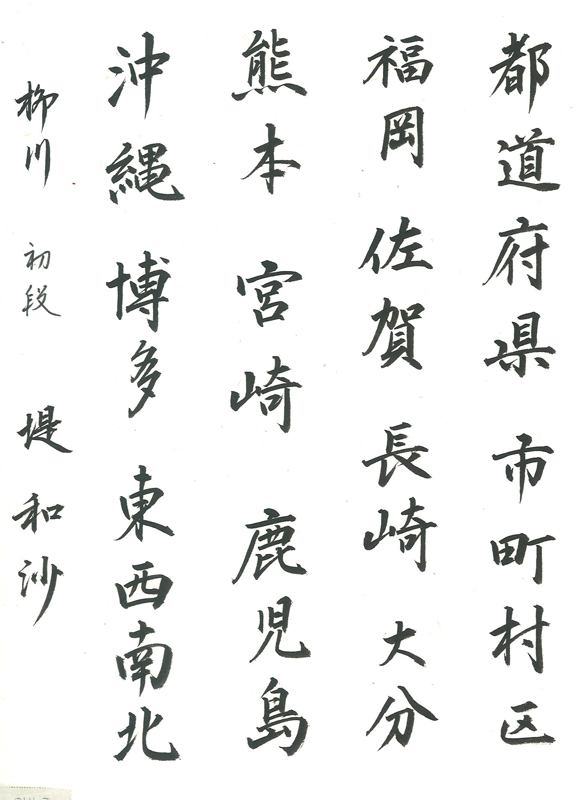 都道府県 市町村区
福岡 佐賀 長崎 大分
熊本 宮崎 鹿児島
沖縄 博多 東西南北
柳川 初段 堤和沙